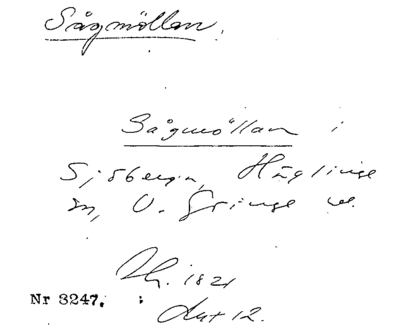 Sågmöllan.
Sågmöllan i
Sjöberga, Häglinge
sn, V. Göinge
1821
Nr 3247.
12.